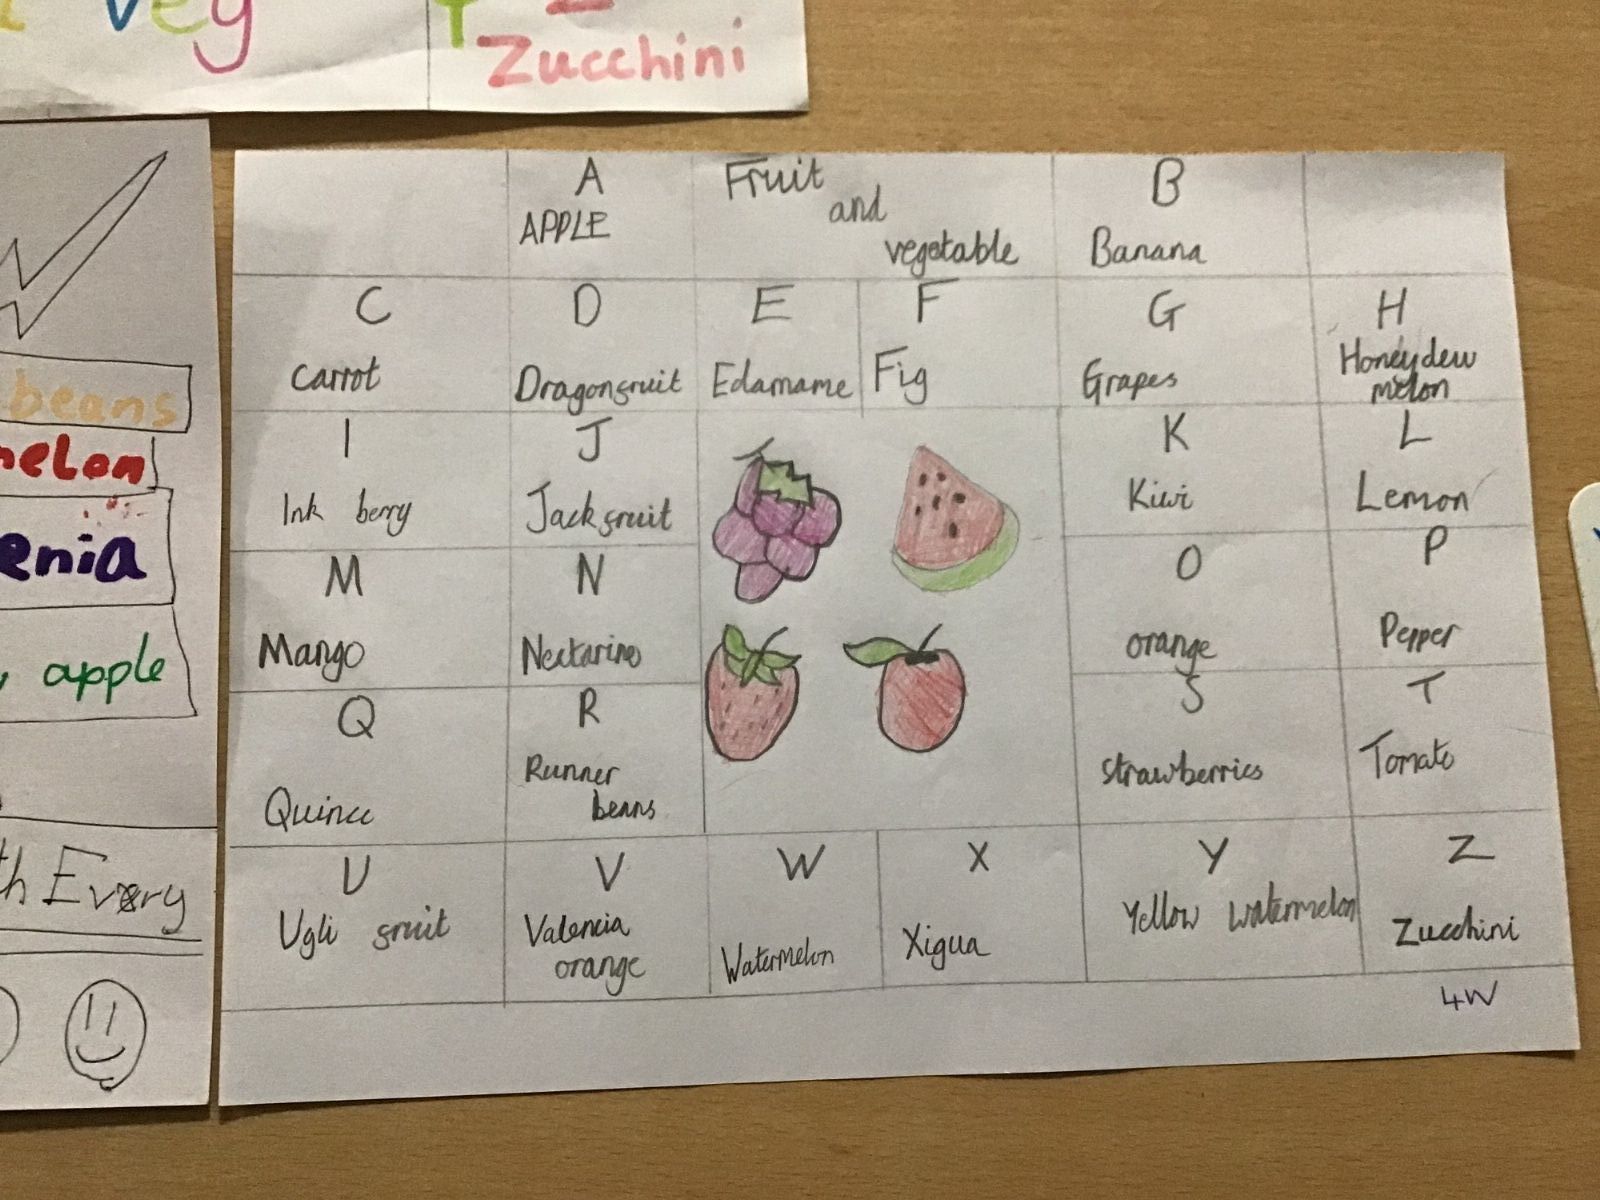 veg
Zucchini
beans
melon
enia
apple
th Every
A
APPLE
Fruit
and
vegetable
B
Banana
C
Carrot
D
Dragonfruit
E
Edamame
F
Fig
G
Grapes
H
Honeydew
melon
I
Ink berry
J
Jackfruit
K
Kiwi
L
Lemon
M
Mango
N
Nectarine
O
orange
P
Pepper
Q
Quince
R
Runner
beans
S
strawberries
T
Tomato
U
Ugli fruit
V
Valencia
orange
W
Watermelon
X
Xigua
Y
Yellow watermelon
Z
Zucchini
4W